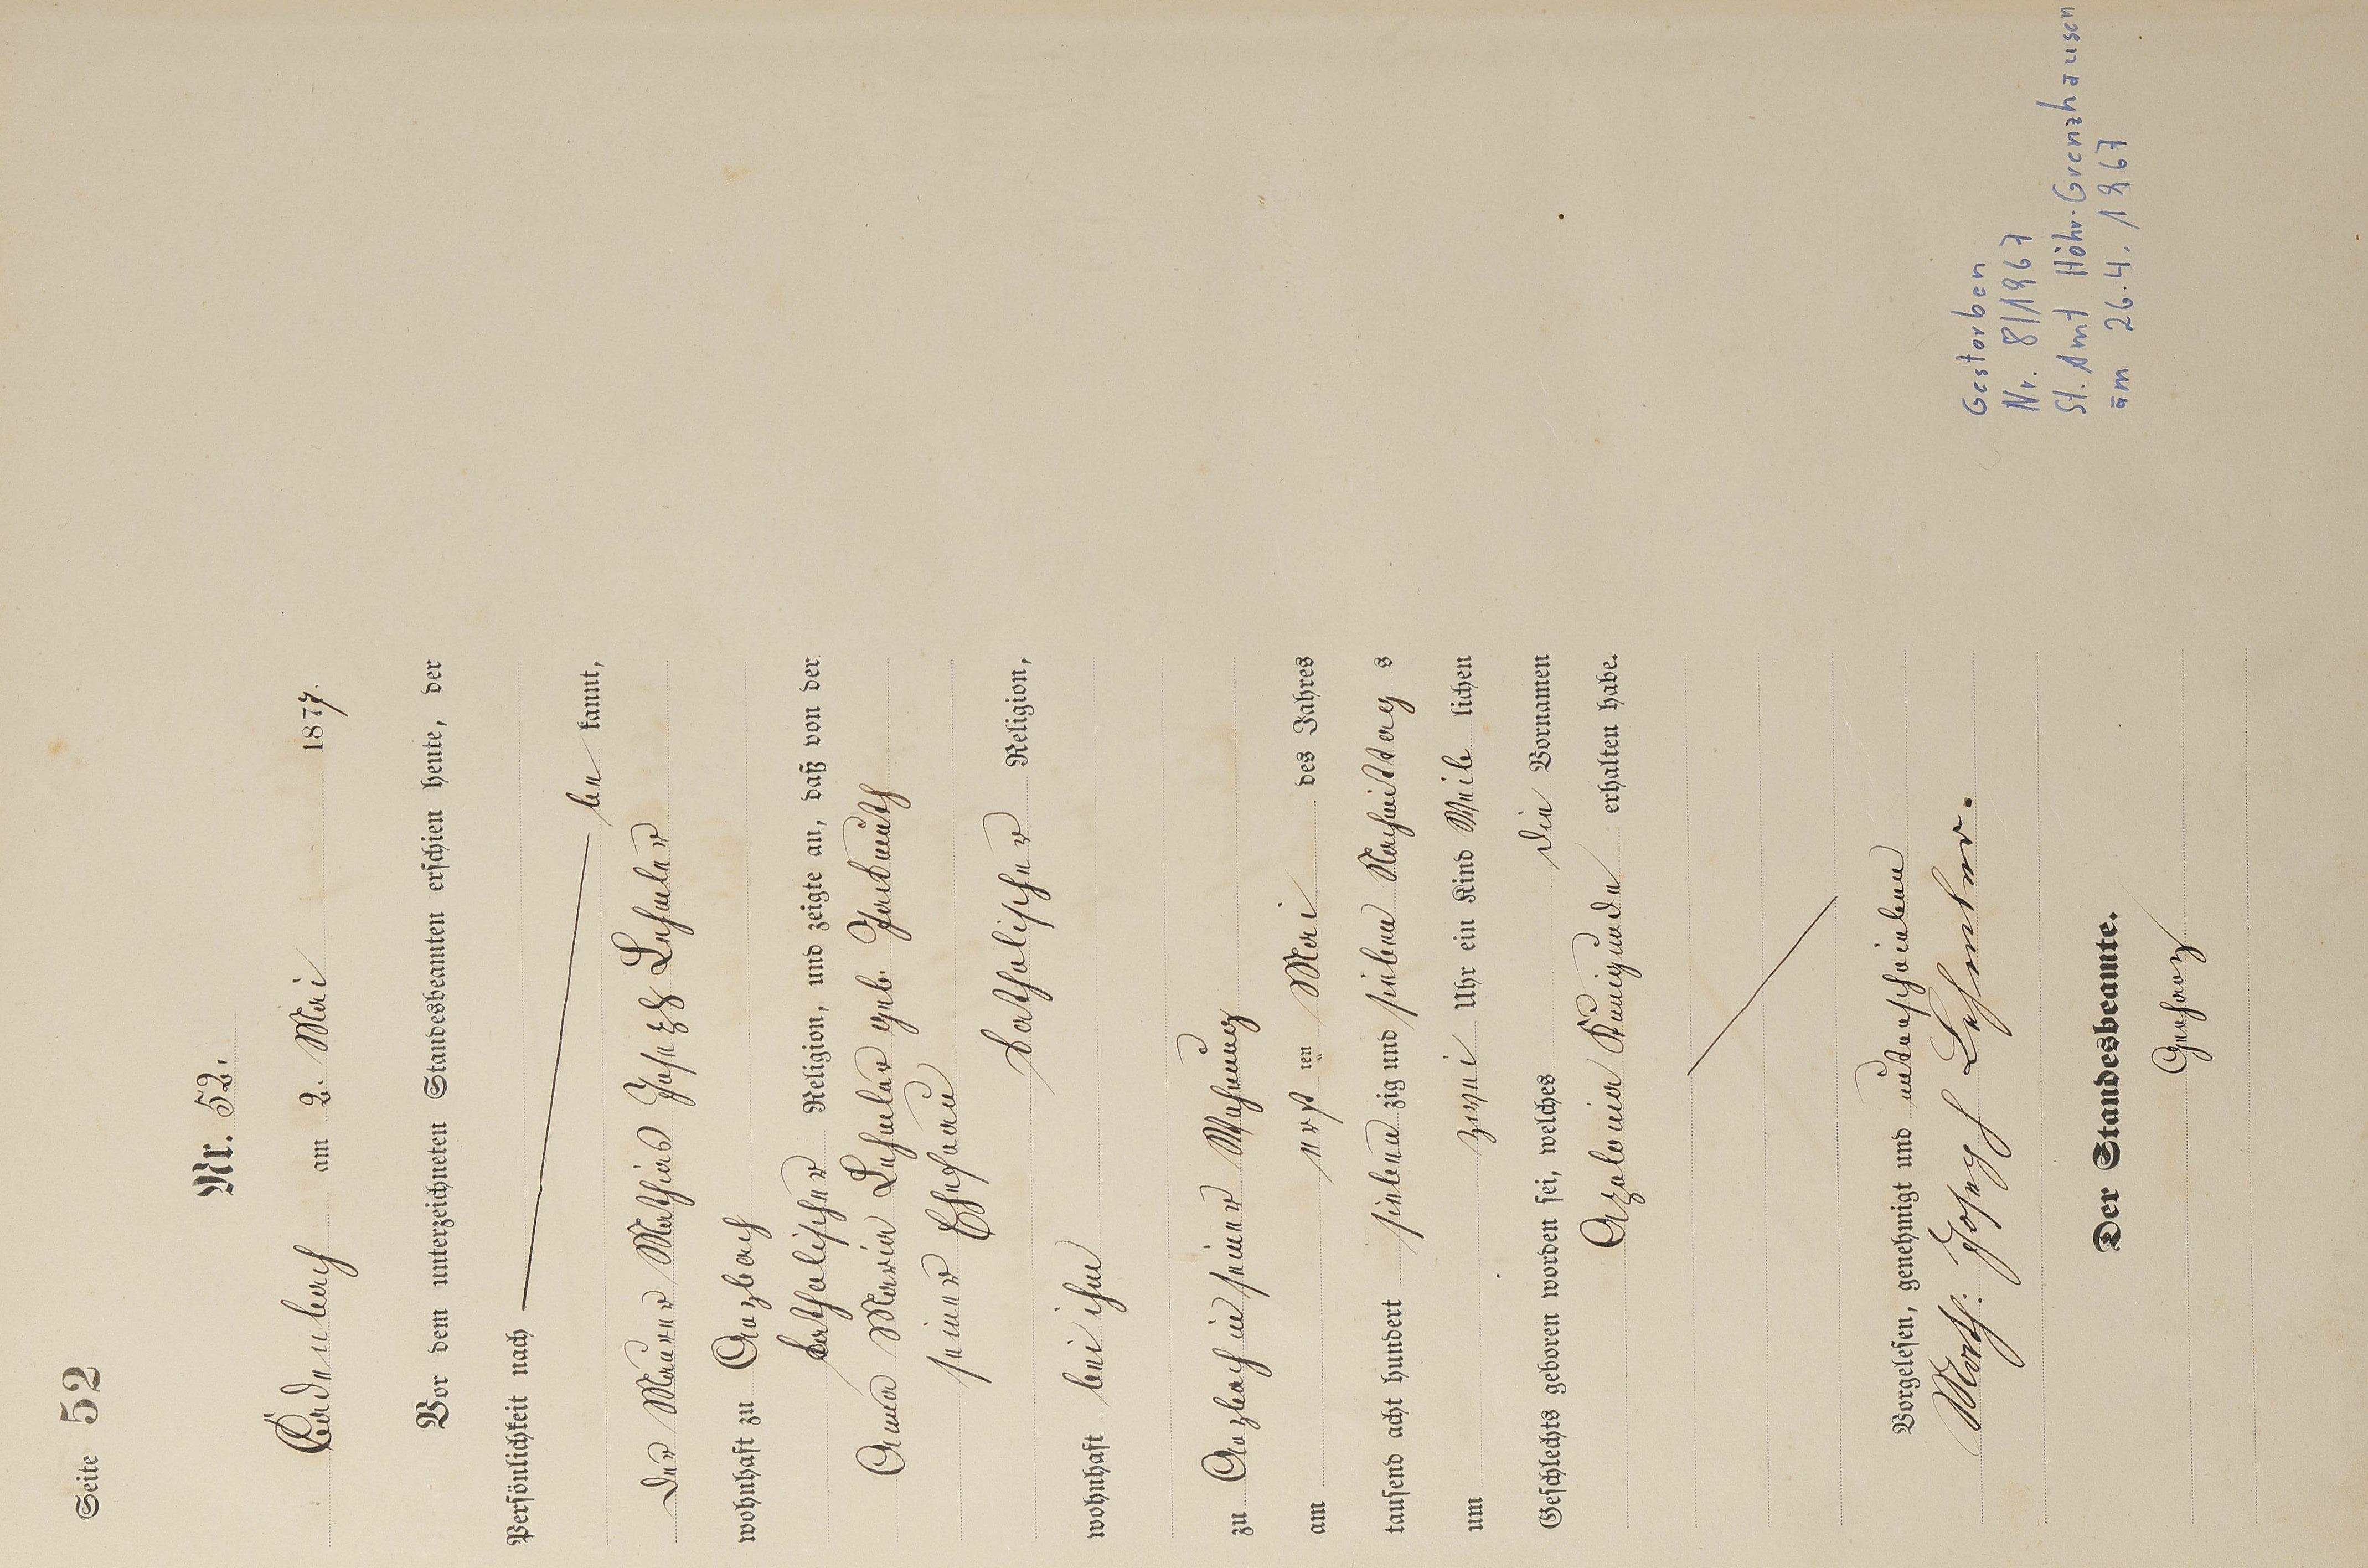 Seite 52
Nr. 52.
Cadenbach am 2. Mai 1877.
Vor dem unterzeichneten Standesbeamten erschien heute, der
Persönlichkeit nach
be kannt,
der Maurer Mathias Joseph Lehmler
wohnhaft zu Arzbach
katholischer Religion, und zeigte an, daß von der
Anna Maria Lehmler geb.
seiner Ehefrau
katholischer Religion,
wohnhaft bei ihm
zu Arzbach in seiner Wohnung
am erst ten Mai des Jahres
tausend acht hundert sieben zig und sieben Nachmittag s
um zwei Uhr ein Kind weib lichen
Geschlechts geboren worden sei, welches die Vornamen
Apolonia Kunigunde erhalten habe.
Vorgelesen, genehmigt und unterschrieben
Math: Joseph Lehmler.
Der Standesbeamte.
Gestorben
Nr. 8/1967
St. Amt Höhr-Grenzhausen
am 26.4.1967